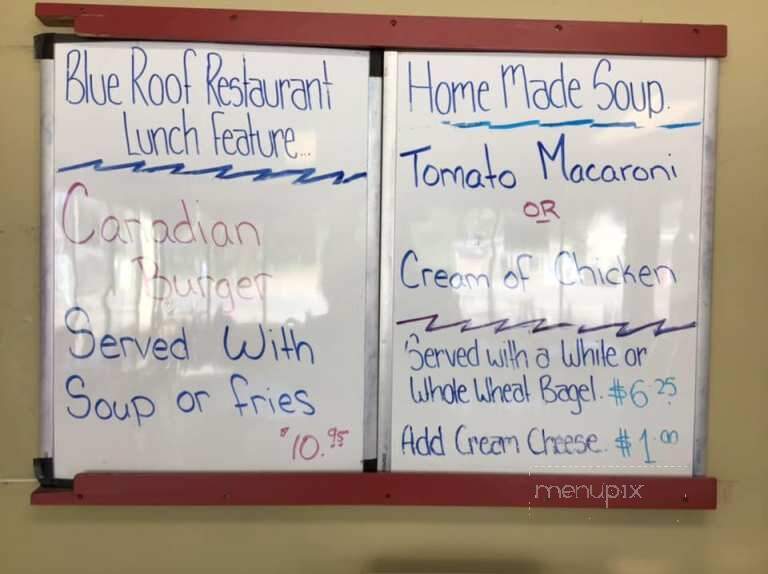 Blue Roof Restaurant
Lunch Feature...
Canadian
Burger
Served With
Soup or fries
$10.95
Home Made Soup.
Tomato Macaroni
OR
Cream of Chicken
Served with a White or
Whole Wheat Bagel. $6.25
Add Cream Cheese. $1.00
menupix